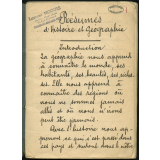 Résumés
d'histoire et Géographie
Introduction
La géographie nous apprend
à connaître le monde, ses
habitants, ses beautés, ses riches-
ses. Elle nous apprend à
connaître des régions où
nous ne sommes jamais
allés et où nous n'irons
peut être jamais.
Avec l'histoire nous ap-
prenons ce qui s'est passé dans
ces pays et surtout dans le nôtre